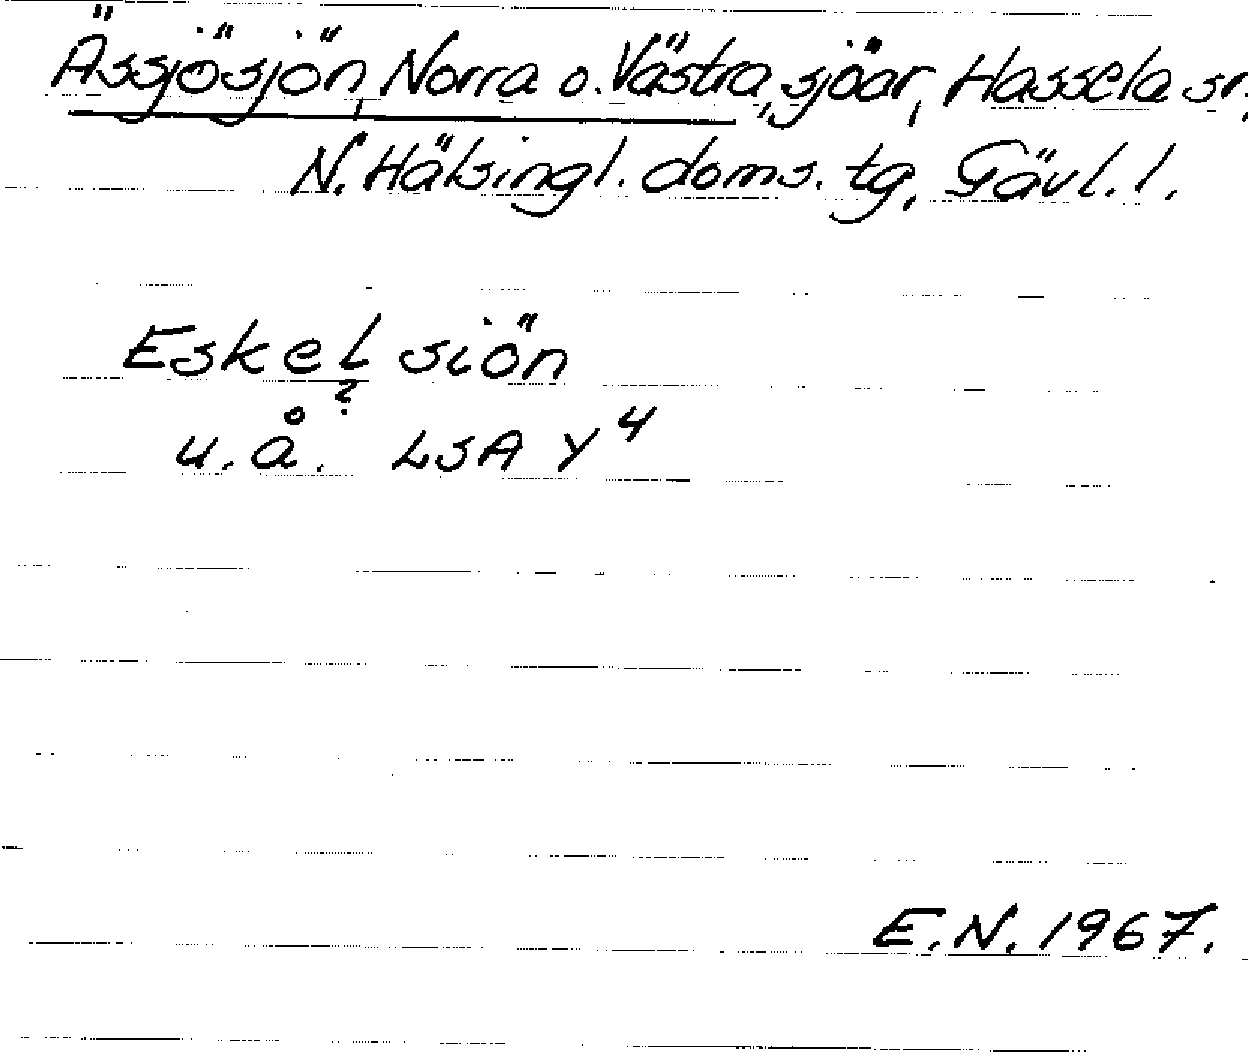 Ässjösjön, Norra o. Västra, sjöar, Hassela sn,
N. Hälsingl. doms. tg, Gävl. l.
Eskel siön
?
u. å. LSA Y4
E.N. 1967.